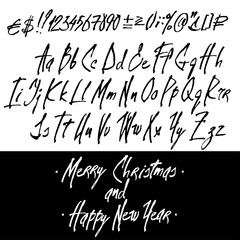 €$!?1234567890
Aa Bb Cc Dd Ee Ff Gg Hh
Ii Jj Kk Ll Mm Nn Oo Pp Qq Rr
Ss Tt Uu Vv Ww Xx Yy Zz
· Merry Christmas ·
and
· Happy New Year ·